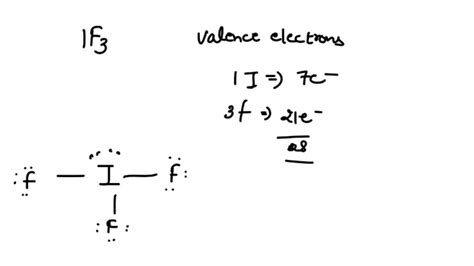 IF3 valence electrons
1 I => 7e-
3f => 21e-
28
:F̤̈ — I — F̤̈:
|
:F̤: